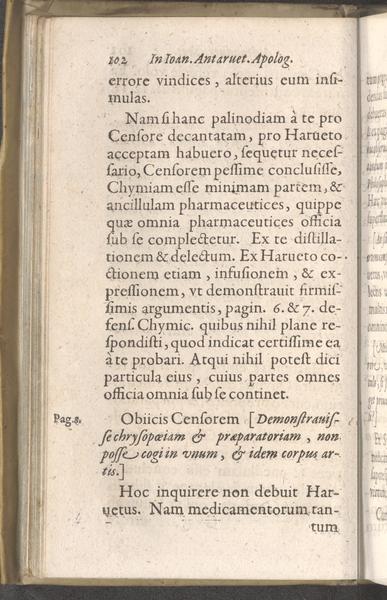 102 In Ioan. Antaruet. Apolog.
errore vindices, alterius eum insi-
mulas.
Nam si hanc palinodiam à te pro
Censore decantatam, pro Harueto
acceptam habuero, sequetur neces-
sario, Censorem pessime conclusisse,
Chymiam esse minimam partem, &
ancillulam pharmaceutices, quippe
quæ omnia pharmaceutices officia
sub se complectetur. Ex te distilla-
tionem & delectum. Ex Harueto co-
ctionem etiam, infusionem, & ex-
pressionem, vt demonstrauit firmis-
simis argumentis, pagin. 6. & 7. de-
fens. Chymic. quibus nihil plane re-
spondisti, quod indicat certissime ea
à te probari. Atqui nihil potest dici
particula eius, cuius partes omnes
officia omnia sub se continet.
Pag. 8. Obiicis Censorem [Demonstrauis-
se chrysopœiam & præparatoriam, non
posse cogi in vnum, & idem corpus ar-
tis.]
Hoc inquirere non debuit Har-
uetus. Nam medicamentorum tan-
tum